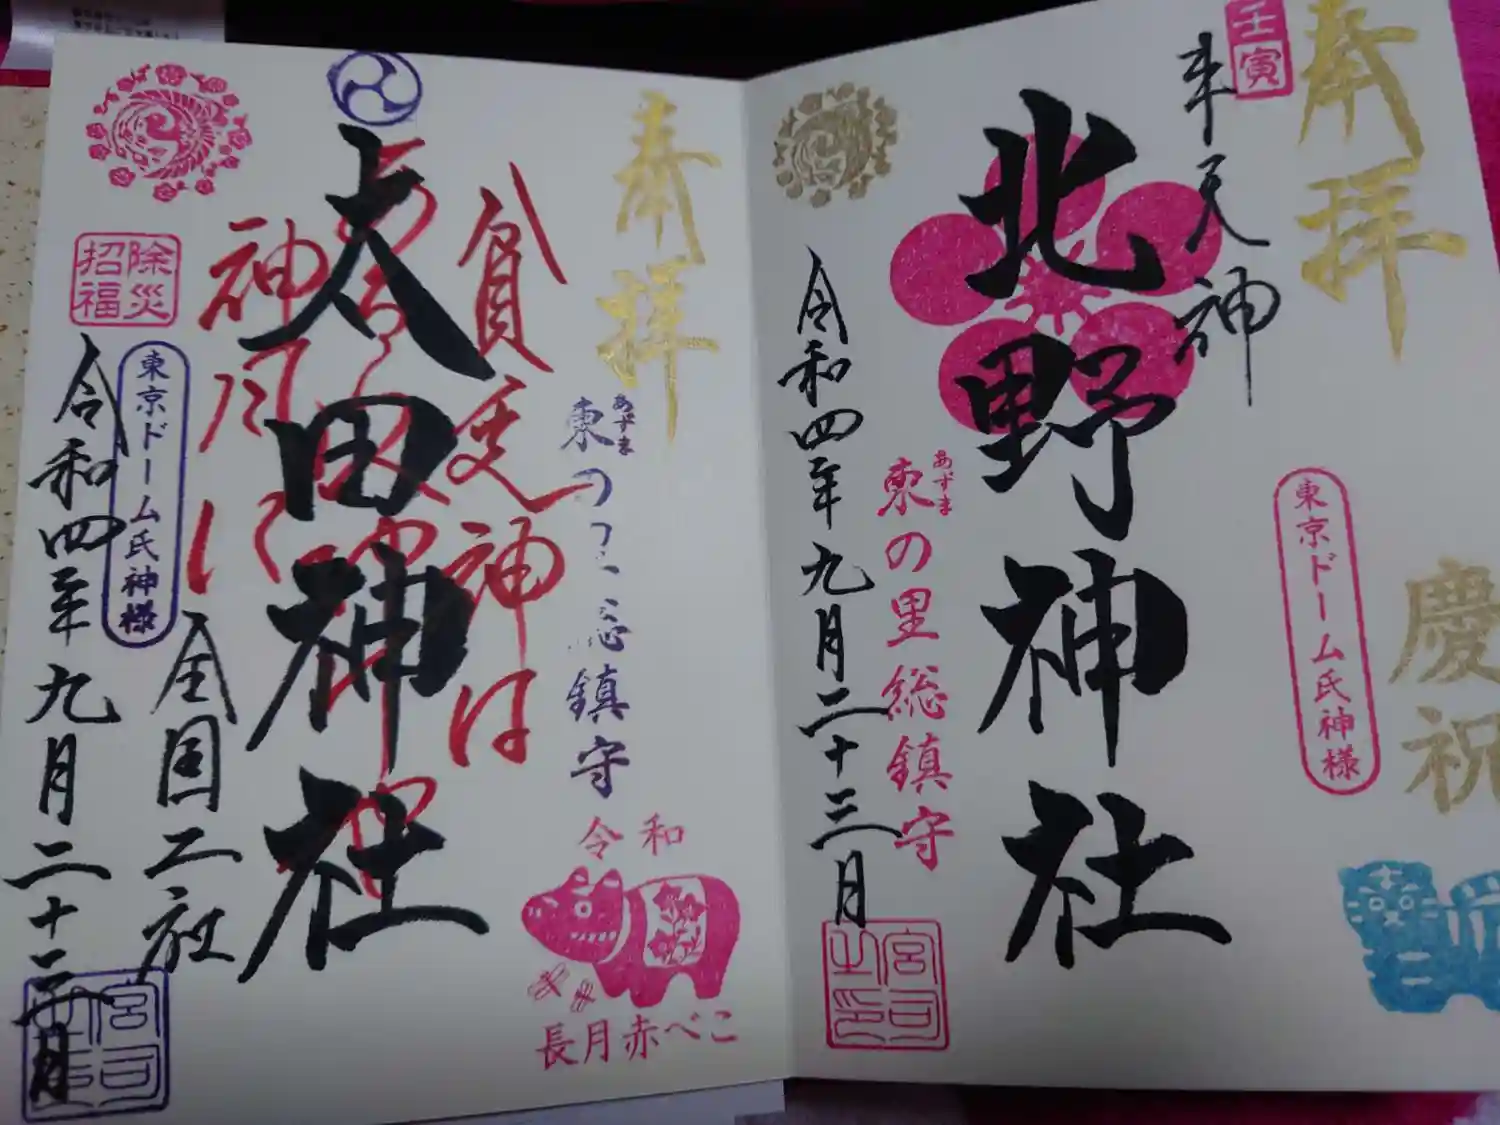 壬寅
奉拝
慶祝
東京ドーム氏神様
牛天神
北野神社
東の里総鎮守
あずま
令和四年九月二十三日
宮司之印
奉拝
東の
総鎮守
あずま
令和
長月赤べこ
貧乏神は
神
太田神社
全国二社
東京ドーム氏神様
除災招福
令和四年九月二十三日
宮司